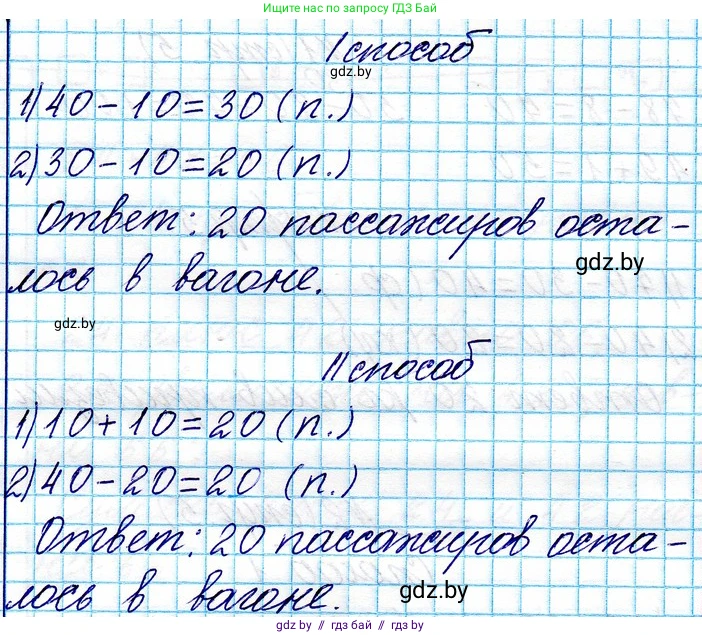 Ищите нас по запросу ГДЗ Бай
I способ
gdz.by
1) 40 - 10 = 30 (п.)
2) 30 - 10 = 20 (п.)
Ответ: 20 пассажиров оста-
gdz.by
лось в вагоне.
gdz.by
II способ
1) 10 + 10 = 20 (п.)
2) 40 - 20 = 20 (п.)
Ответ: 20 пассажиров оста-
лось в вагоне.
gdz.by
gdz.by // гдз бай // гдз.by